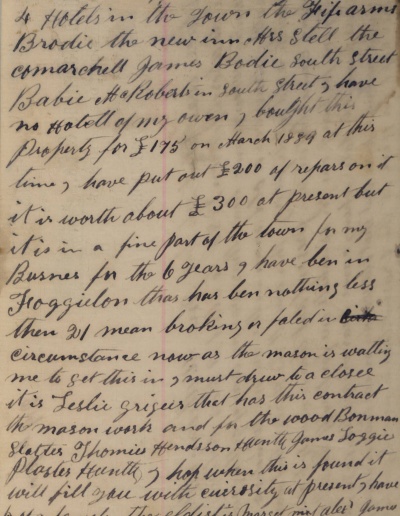 4 Hotels in the Town the Fife arms
Brodie the new inn Mrs Stell the
comarchell James Bodie South Street
Babie McRobert in South Street y have
no Hotell of my owen y bought this
Property for £175 on March 1899 at this
time y have put out £200 of repars on it
it is worth about £300 at present but
it is in a fine part of the town for my
Busnes for the 6 years y have ben in
Foggielon thar has ben nothing less
then 21 mean broking or faled in
circumstence now as the mason is walting
me to get this in y must drew to a closee
it is Leslie that has this contract
the mason work and for the wood Bonman
Slatter Thomies Hendsson Huntly James Loggie
Plaster Huntly y hop when this is found it
will fill you with cuirosity at present y have
the James